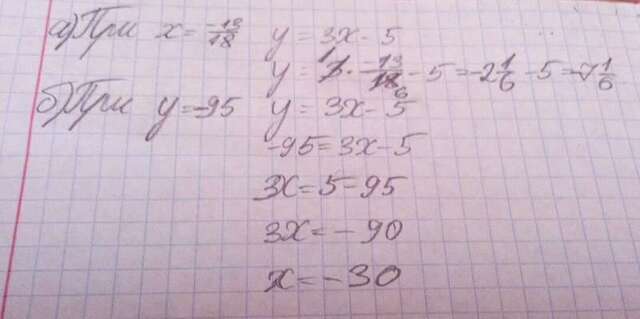 а) При x = -13/18 y = 3x - 5
y = 3 · -13/18 - 5 = -2 1/6 - 5 = -7 1/6
б) При y = -95 y = 3x - 5
-95 = 3x - 5
3x = 5 - 95
3x = - 90
x = - 30